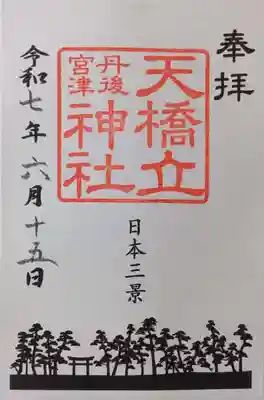 奉拝
天橋立
丹後
宮津
神社
日本三景
令和七年六月十五日